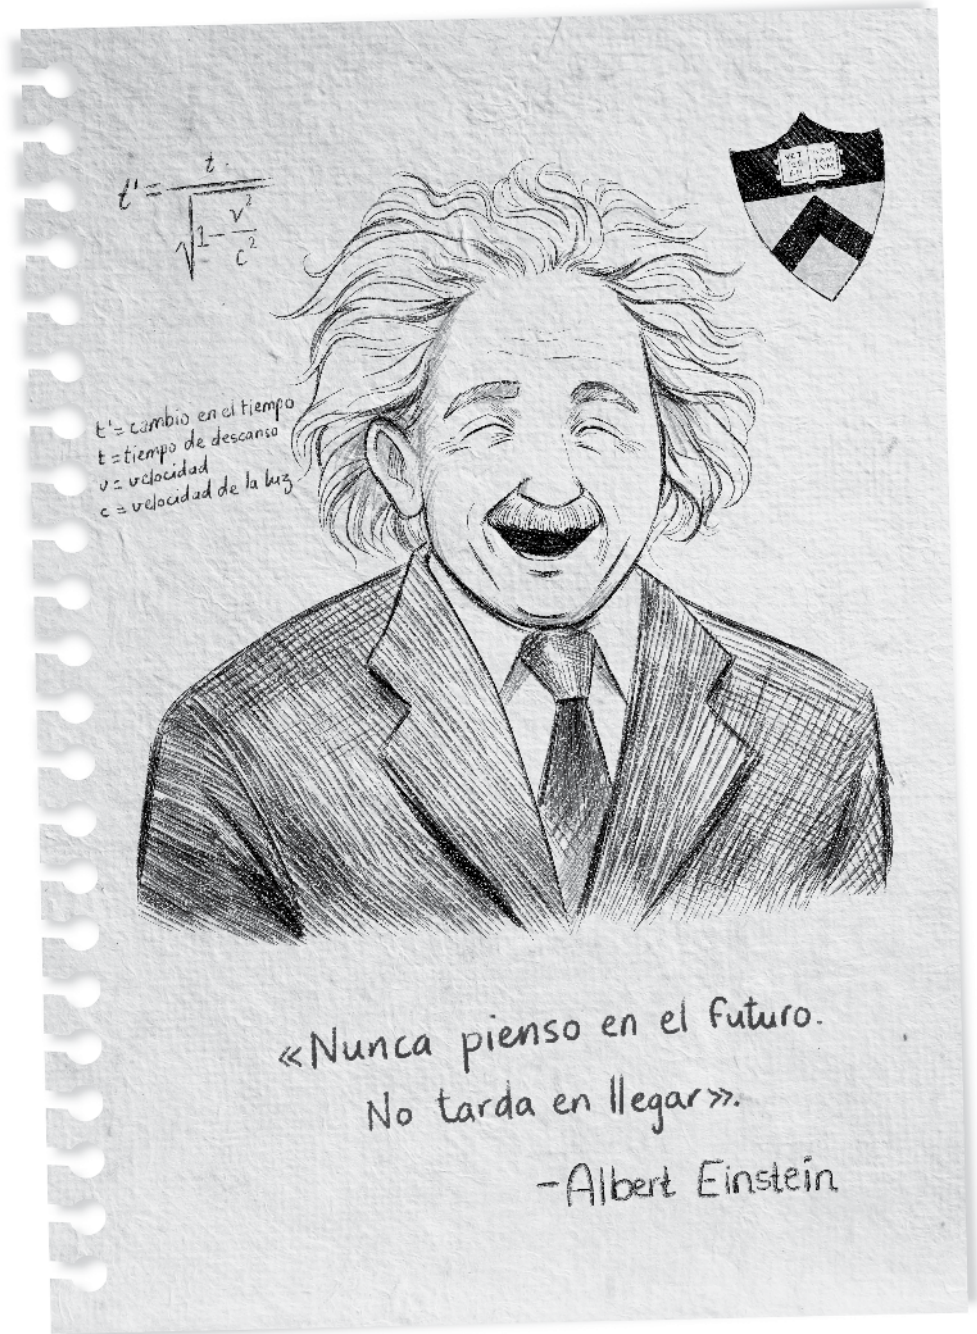 t' = t / √(1 - v²/c²)
t' = cambio en el tiempo
t = tiempo de descanso
v = velocidad
c = velocidad de la luz
«Nunca pienso en el futuro.
No tarda en llegar».
-Albert Einstein